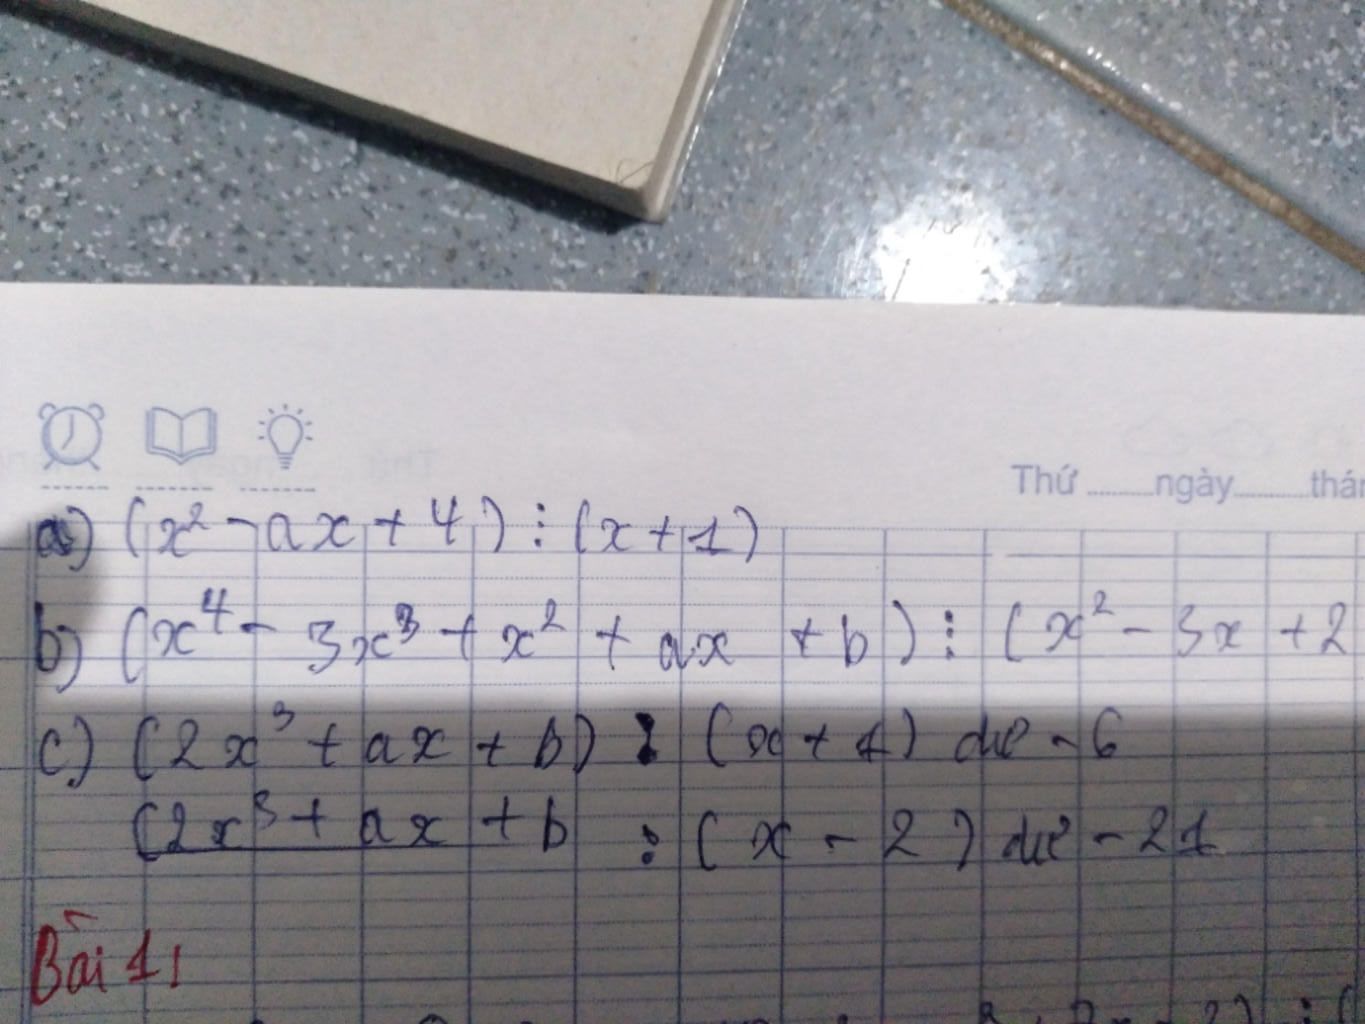 Thứ ........ngày.........thán
a) (x² - ax + 4) ⋮ (x + 1)
b) (x⁴ - 3x³ + x² + ax + b) ⋮ (x² - 3x + 2
c) (2x³ + ax + b) : (x + 1) dư - 6
(2x³ + ax + b : (x - 2) dư - 21
Bài 1: